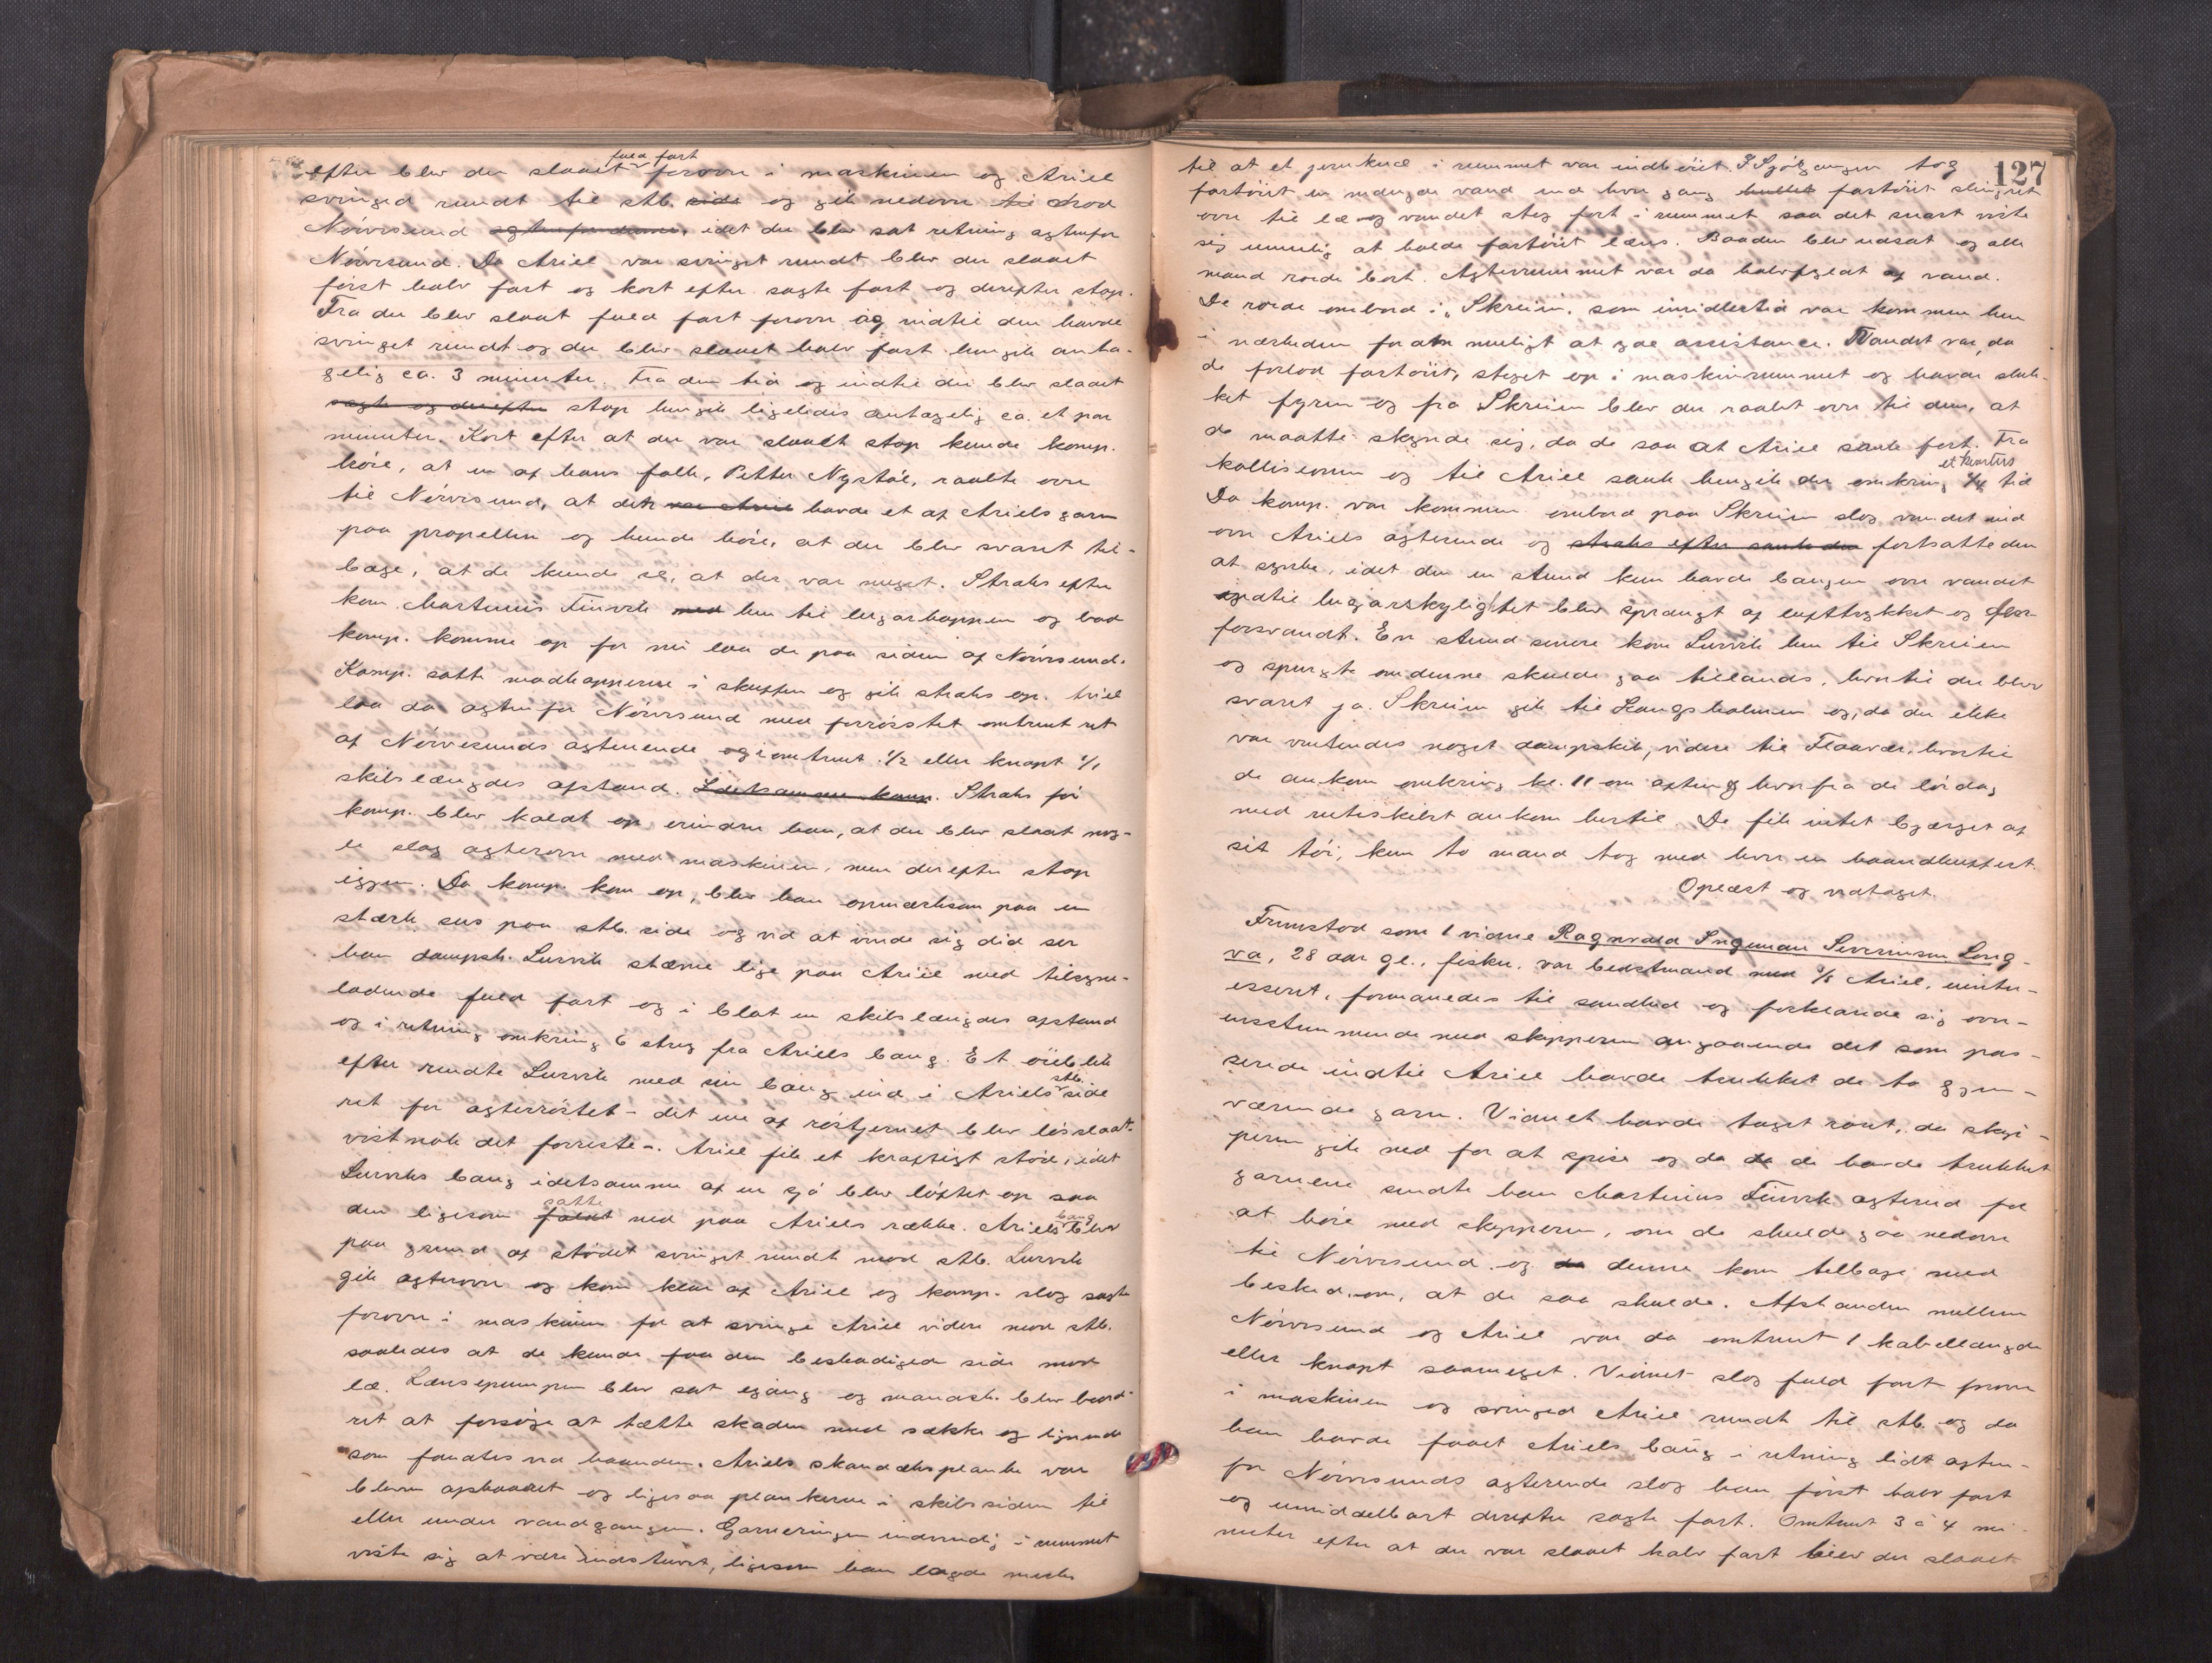 efter blev der slaaet fuld fart forover i maskinen og Ariel
svinget rundt til stb. side og gik nedover til mod
Nörvesund agtenfor denne, idet der blev sat retning agtenfor
Nörvesund. Da Ariel var svinget rundt blev der slaaet
först halv fart og kort efter sagte fart og derefter stop.
Fra der blev slaat fuld fart forover og indtil den havde
svinget rundt og der blev slaaet halv fart hengik anta-
gelig ca. 3 minuter. Fra den tid og indtil der blev slaaet
sagte og derefter stop hengik ligeledes antagelig ca. et par
minuter. Kort efter at der var slaaet stop kunde komp.
höre, at en af hans folk, Petter Nystöl, raabte over
til Nörvesund, at det var Ariel havde et af Ariels garn
paa propellen og kunde höre, at der blev svaret til-
bage, at de kunde se, at der var noget. Straks efter
kom Martinus Furvik med hen til lugarkappen og bad
komp. komme op for nu laa de paa siden af Nörvesund.
Komp. satte madkopperne i skuffen og gik straks op. Ariel
laa da agtenfor Nörvesund med forröstet omtrent ret
af Nörvesunds agterende og i omtrent 1/2 eller knapt 1/1
skibslængdes afstand. Idetsamme komp. Straks för
komp. blev kaldt op erindrer han, at der blev slaat nog-
le slag agterover med maskinen, men derefter stop
igjen. Da komp. kom op, blev han opmærksom paa en
stærk sus paa stb. side og ved at vende sig did ser
han dampsk. Lurvik stævne lige paa Ariel med tilsyne-
ladende fuld fart og i blot en skibslængdes afstand
og i retning omkring 6 streg fra Ariels baug. Et öieblik
efter rendte Lurvik med sin baug ind i Ariels stb. side
ret for agterröstet - det ene af röstjernet blev lösslaat
vistnok det forreste -. Ariel fik et kraftigt stöd, idet
Lurviks baug idetsamme af en sjö blev löftet op saa
den ligesom faldt satte ned paa Ariels række. Ariels baug blev
paa grund af stödet svinget rundt mod stb. Lurvik
gik agterover og kom klar af Ariel og komp. slog sagte
forover i maskinen for at svinge Ariel videre mod stb.
saaledes at de kunde faa den beskadigede side mod
læ. Lænsepumpen blev sat igang og mandsk. blev beord-
ret at forsöge at tætte skaden med sække og lignende
som fandtes ved haanden. Ariels skandæksplanke var
bleven afskaaret og ligesaa plankerne i skibssiden til
eller under vandgangen. Garneringen indvendig i rummet
viste sig at være indstuvet, ligesom han lagde mærke
127
til at et jernkne i rummet var indböiet. I Sjögangen tog
fartöiet en mængde vand ind hver gang hullet fartöiet slingret
over til læ og vandet steg fort i rummet saa det snart viste
sig umulig at holde fartöiet læns. Baaden blev udsat og alle
mand roede bort. Agterrummet var da halvfyldt af vand.
De roede ombord i „Skreien" som imidlertid var kommen hen
i nærheden for om muligt at gde assistance. Vandet var, da
de forlod fartöiet, steget op i maskinrummet og havde sluk-
ket fyren og fra Skreien blev der raabt over til dem, at
de maatte skynde sig, da de saa at Ariel sank fort. Fra
kollisionen og til Ariel sank hengik der omkring 1/4 et kvarters tid
Da komp. var kommen ombord paa Skreien slog vandet ind
over Ariels agterende og straks efter sank den fortsatte den
at synke, idet den en stund kun havde baugen over vandet
indtil lugarskylightet blev sprængt af lufttrykket og den
forsvandt. En stund senere kom Lurvik hen til Skreien
og spurgte om denne skulde gaa tillands, hvortil der blev
svaret ja. Skreien gik til Haugsholmen og, da der ikke
var ventendes noget dampskib, videre til Flaavær, hvortil
de ankom omkring kl. 11 om aften og hvorfra de lördag
med ruteskibet ankom hertil. De fik intet bjærget af
sit töi, kun to mand tog med hver en haandkuffert.
Oplæst og vedtaget.
Fremstod som 1 vidne Ragnvald Ingeman Severinsen Long-
va, 28 aar gl., fisker, var bedstmand med d/s Ariel, uinter-
esseret, formanedes til sandhed og forklarede sig over-
ensstemmende med skipperen angaaende det som pas-
serede indtil Ariel havde trukket de to gjen-
værende garn. Vidnet havde taget roret, da skip-
peren gik ned for at spise og da da de havde trukket
garnene sendte han Martinus Furvik agterud for
at höre med skipperen, om de skulde gaa nedover
til Nörvesund og da denne kom tilbage med
besked om, at de saa skulde. Afstanden mellem
Nörvesund og Ariel var da omtrent 1 kabellængde
eller knapt saameget. Vidnet slog fuld fart forover
i maskinen og svinged Ariel rundt til stb. og da
han havde faaet Ariels baug i retning lidt agten-
for Nörvesunds agterende slog han först halv fart
og umiddelbart derefter sagte fart. Omtrent 3 à 4 mi-
nuter efter at der var slaaet halv fart blev der slaaet